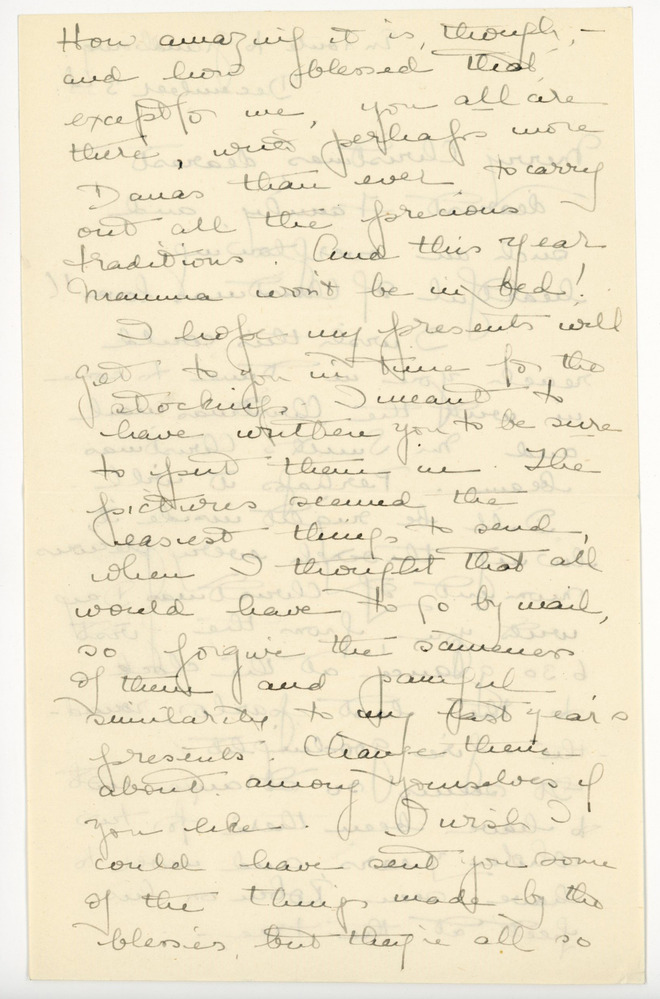 How amazing it is, though, -
and how blessed that,
except for me, you all are
there, with perhaps more
Danas than ever to carry
out all the precious
traditions. And this year
Mamma won't be in bed!
I hope my presents will
get to you in time for the
stockings. I meant to
have written you to be sure
to put them in. The
pictures seemed the
easiest things to send,
when I thought that all
would have to go by mail,
so forgive the sameness
of them and painful
similarity to my last year's
presents. Change them
about among yourselves if
you like. I wish I
could have sent you some
of the things made by the
blessés, but they're all so